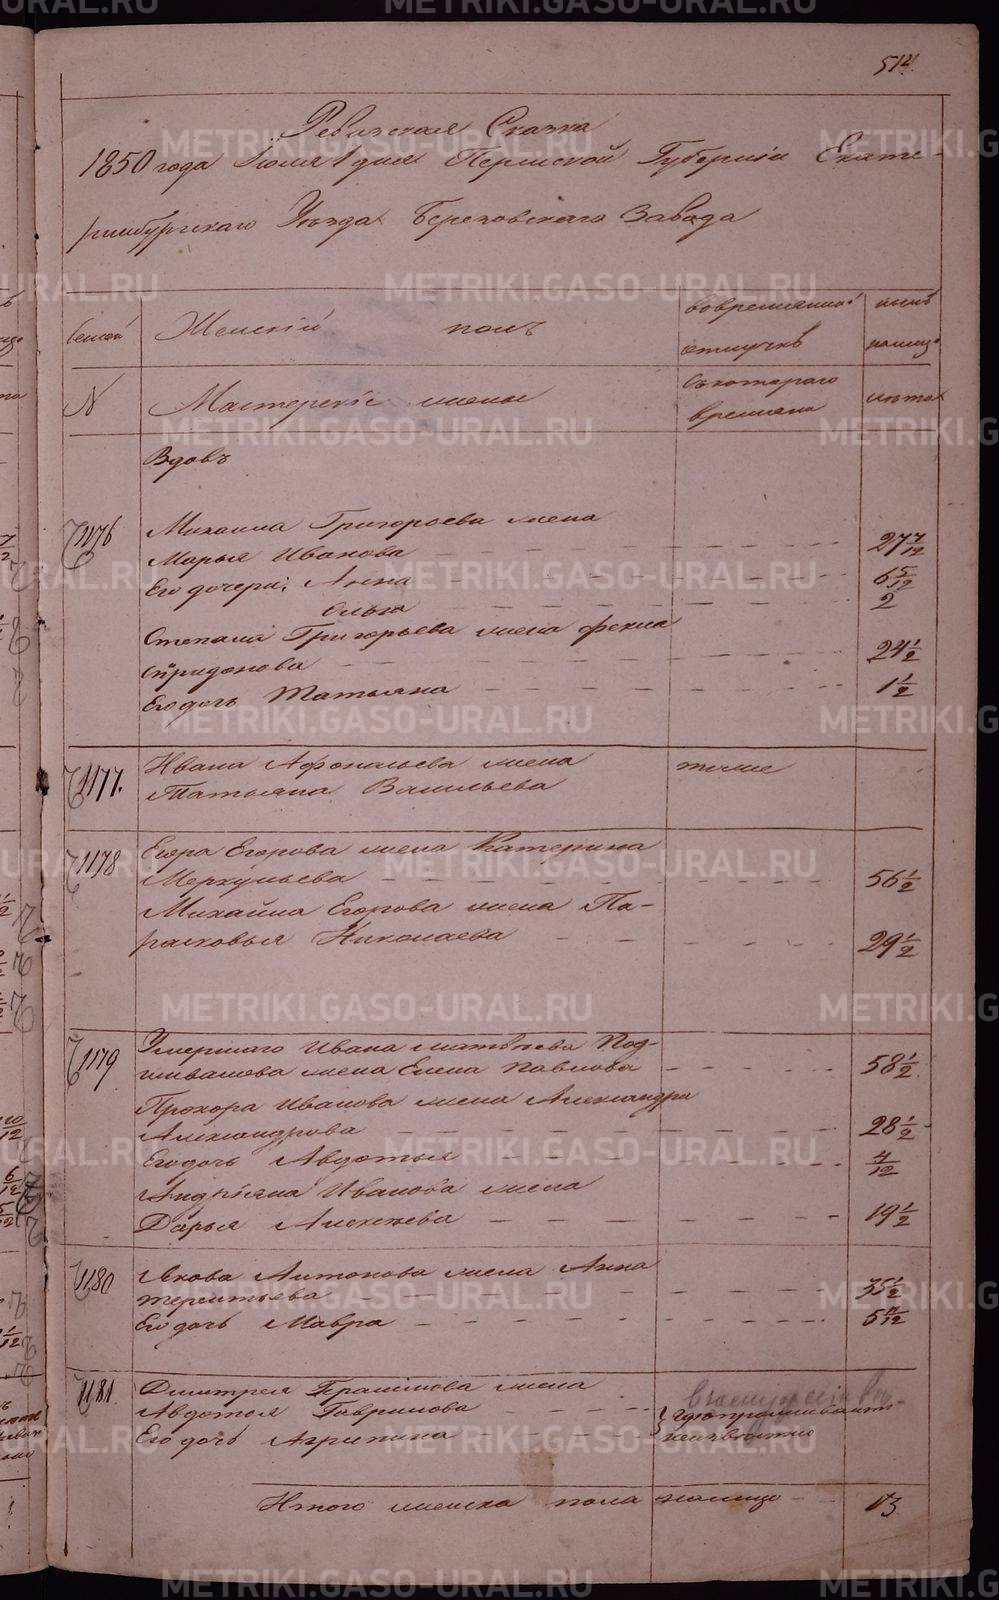 514.
Ревизская Сказка
1850 года Июля 1 дня Пермской Губернии Екате-
ринбургскаго Уезда Березовскаго Завода
Женский полъ
во временной отлучке
ныне налицо
семей
N
Мастерские жены
съ котораго времени
лета
Вдовъ
1176
Михаила Григорьева жена
Марья Иванова 27 7/12
Его дочери: Анна 6 5/12
Ольга 2
Степана Григорьева жена Фекла
Спиридонова 24 1/2
Его дочь Татьяна 1 1/2
1177.
Ивана Афонасьева жена
Татьяна Васильева
тоже
1178
Егора Егорова жена Катерина
Меркульева 56 1/2
Михайла Егорова жена Па-
расковья Николаева 29 1/2
1179
Умершаго Ивана Матвеева Под-
шивалова жена Елена Павлова 58 1/2
Прохора Иванова жена Александра
Александрова 28 1/2
Его дочь Авдотья 4/12
Андрияна Иванова жена
Дарья Алексеева 19 1/2
1180
Якова Антонова жена Анна
Терентьева 35 1/2
Его дочь Мавра 5 11/12
1181.
Дмитрея Гра
жена
Авдотья Гаврилова
Его дочь Агрипина
где проживаютъ
неизвестно
Итого женска пола налицо 13
METRIKI.GASO-URAL.RU